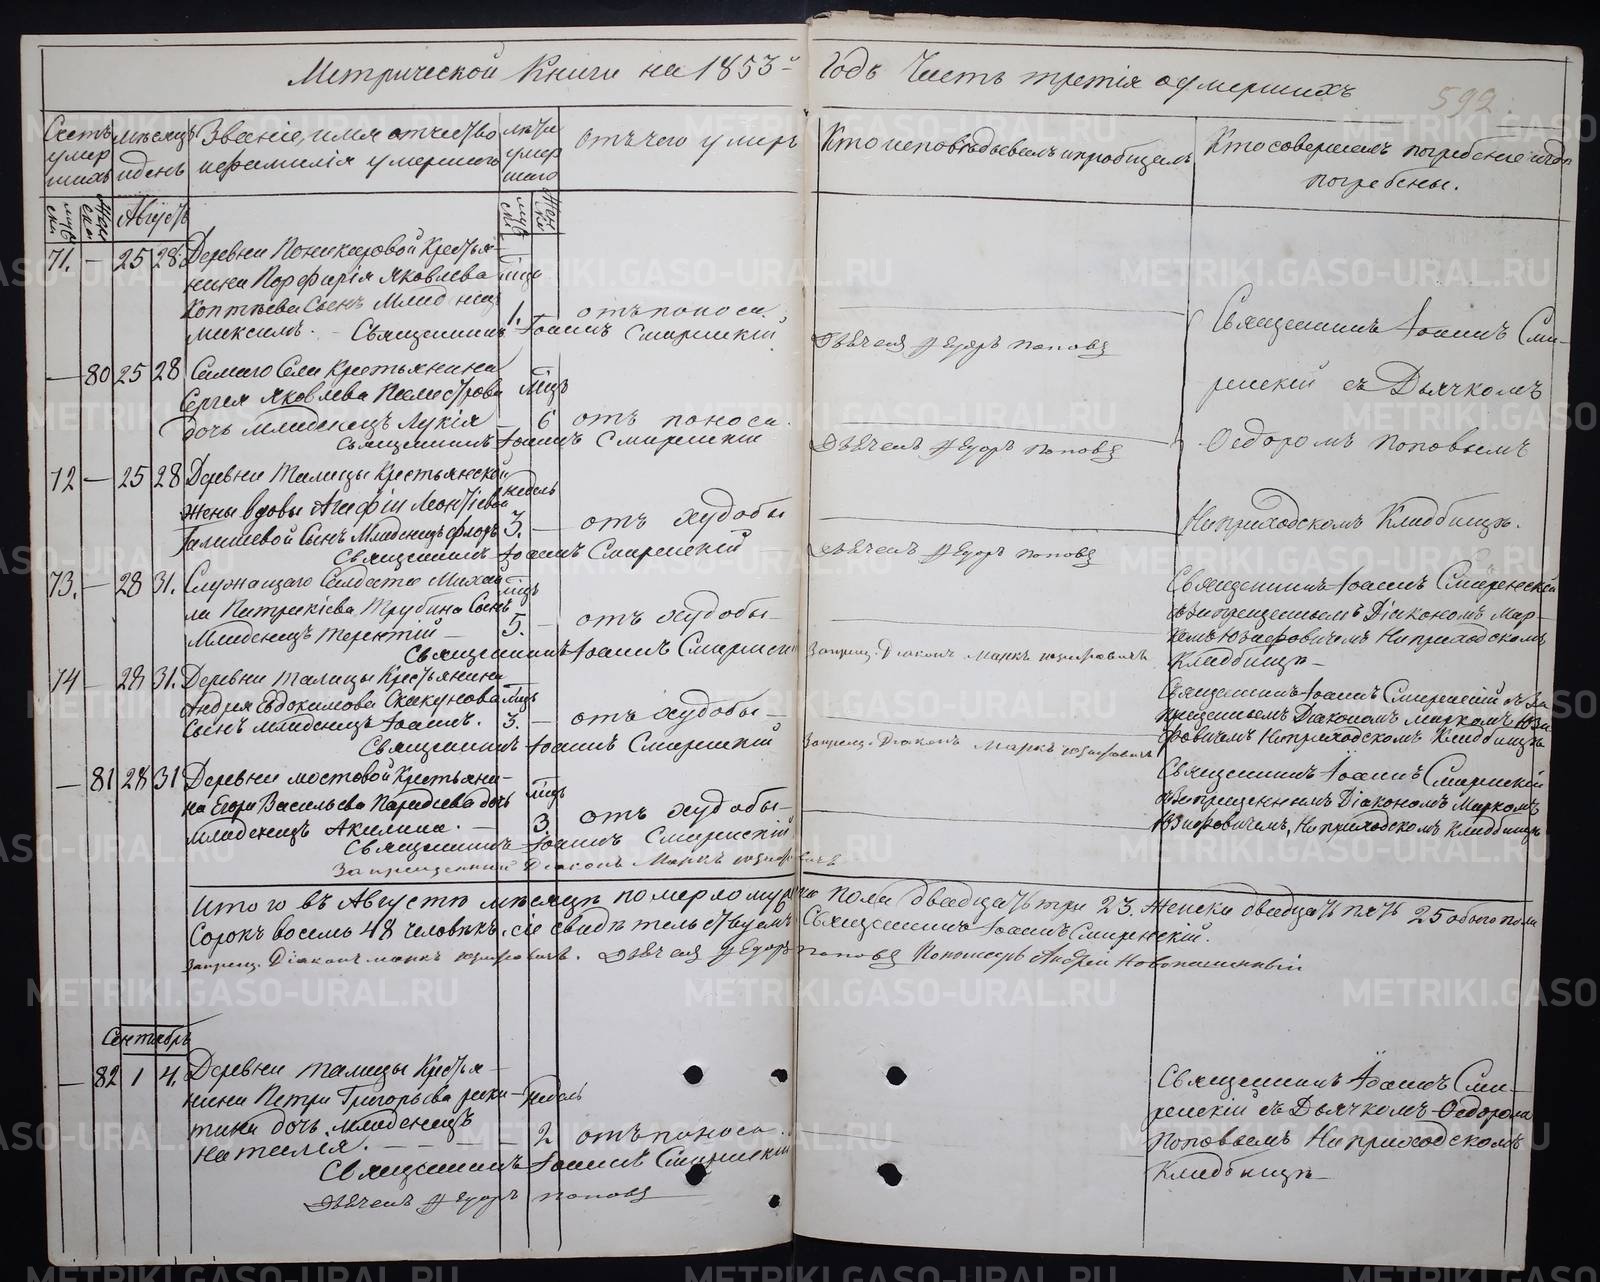 Метрической Книги на 1853й Годъ Часть третія о умершихъ
592.
Счетъ умерших
мѣсяцъ и день
Званіе, имя отчество и фамилія умершаго
лѣта умершаго
Отъ чего умеръ
Кто исповѣдывалъ и пріобщалъ
Кто совершалъ погребеніе и гдѣ погребены.
Августъ
71. — 25 28 Деревни Поникаровой Крестья-
нина Порфирія Яковлева мц
Коптѣева Сынъ Млад нц 1. отъ поноса.
Максимъ. — Священникъ Іоаннъ Смиренскій
Дьячекъ Ѳедоръ Поповъ
Священникъ Іоаннъ Сми-
ренскій съ Дьячкомъ
Ѳедоромъ Поповымъ
На приходскомъ Кладбищѣ.
— 80 25 28 Самаго Села Крестьянина
Сергея Яковлева мцъ
дочь младенецъ Лукія 6 отъ поноса.
Священникъ Іоаннъ Смиренскій
Дьячекъ Ѳедоръ Поповъ
72 — 25 28 Деревни Талицы Крестьянской
жены вдовы Агафіи Леонтіевой недель
Сынъ Младенецъ Флоръ 3. — отъ худобы
Священникъ Іоаннъ Смиренскій
Дьячекъ Ѳедоръ Поповъ
73. — 28 31. Служащаго Солдата Михаи
ла Патрикіева Трубина Сынъ мцъ
Младенецъ Терентій — 5. — отъ худобы —
Священникъ Іоаннъ Смиренскій
Запрещ. Діаконъ Маркъ Юзифовичъ
Священникъ Іоаннъ Смиренскій
съ Запрещеннымъ Діакономъ Мар-
комъ Юзифовичемъ На приходскомъ
Кладбищѣ —
74 — 28 31. Деревни Талицы Крестьянина
Андрея Евдокимова Скакунова мцъ
Сынъ младенецъ Іоаннъ. 3. — отъ худобы —
Священникъ Іоаннъ Смиренскій
Запрещ. Діаконъ Маркъ Юзифовичъ
Священникъ Іоаннъ Смиренскій съ За
прещеннымъ Діакономъ Маркомъ Юзи
фовичемъ На приходскомъ Кладбищѣ
— 81 28 31 Деревни Мостовой Крестьяни-
на Егора Васильева дочь мцъ
младенецъ Акилина. — 3. отъ худобы —
Священникъ Іоаннъ Смиренскій
Запрещенный Діаконъ Маркъ Юзифовичъ
Священникъ Іоаннъ Смиренскій
съ Запрещеннымъ Діакономъ Маркомъ
Юзифовичемъ, На приходскомъ Кладбищѣ
Итого въ Августѣ мѣсяцѣ померло мужска пола двадцать три 23. Женска двадцать пять 25 обоего пола
Сорокъ восемь 48 человѣкъ. сіе свидѣтельствуемъ Священникъ Іоаннъ Смиренскій.
Запрещ. Діаконъ Маркъ Юзифовичъ. Дьячекъ Ѳедоръ Поповъ Пономарь Андрей Новопашинный
Сентябрь
— 82 1 4. Деревни Талицы Крестья-
нина Петра Григорьева недель
дочь младенецъ 2 отъ поноса.
Наталія. —
Священникъ Іоаннъ Смиренскій
Дьячекъ Ѳедоръ Поповъ
Священникъ Іоаннъ Сми-
ренскій съ Дьячкомъ Ѳедоромъ
Поповымъ На приходскомъ
Кладбищѣ —
METRIKI.GASO-URAL.RU